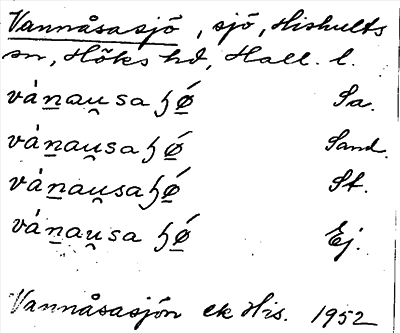 Vannåsasjö, sjö, Hishults
sn, Höks hd, Hall. l.
vánau̯sa ɧǿ Sa.
vánau̯sa ɧǿ Sand.
vánau̯sa ɧǿ St.
vánau̯sa ɧǿ Ej.
Vannåsasjön ek His. 1952